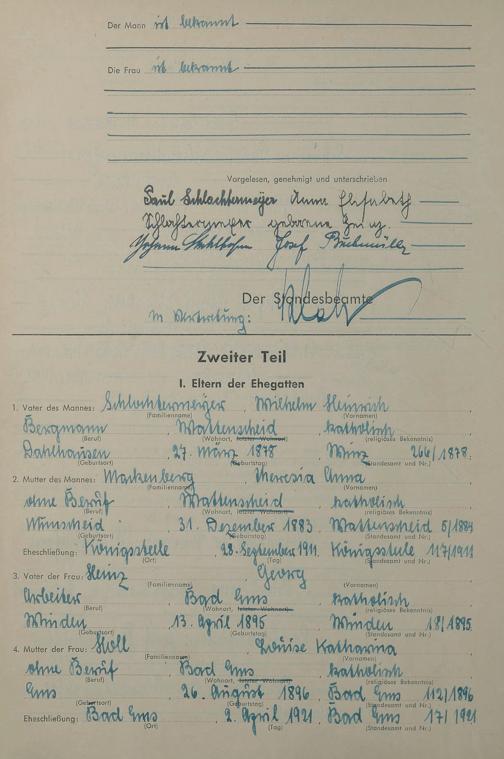 Der Mann ist bekannt
Die Frau ist bekannt
Vorgelesen, genehmigt und unterschrieben
Paul Schlachtermeyer Anna Elisabeth
Schlachtermeyer geborene Heinz.
Johann Josef
Der Standesbeamte
In Vertretung:
Zweiter Teil
I. Eltern der Ehegatten
1. Vater des Mannes: Schlachtermeyer, Wilhelm Heinrich
(Familienname) (Vornamen)
Bergmann, Wattenscheid, katholisch
(Beruf) (Wohnort, letzter Wohnort) (religiöses Bekenntnis)
Dahlhausen, 27. März 1878, Winz 266/1878.
(Geburtsort) (Geburtstag) (Standesamt und Nr.)
2. Mutter des Mannes: Mackenberg, Theresia Anna
(Familienname) (Vornamen)
ohne Beruf, Wattenscheid, katholisch
(Beruf) (Wohnort, letzter Wohnort) (religiöses Bekenntnis)
31. Dezember 1883, Wattenscheid 5/1884
(Geburtsort) (Geburtstag) (Standesamt und Nr.)
Eheschließung: Königssteele, 28. September 1911, Königssteele 117/1911
(Ort) (Tag) (Standesamt und Nr.)
3. Vater der Frau: Heinz, Georg
(Familienname) (Vornamen)
Arbeiter, Bad Ems, katholisch
(Beruf) (Wohnort, letzter Wohnort) (religiöses Bekenntnis)
Winden, 13. April 1895, Winden 18/1895
(Geburtsort) (Geburtstag) (Standesamt und Nr.)
4. Mutter der Frau: Noll, Louise Katharina
(Familienname) (Vornamen)
ohne Beruf, Bad Ems, katholisch
(Beruf) (Wohnort, letzter Wohnort) (religiöses Bekenntnis)
Ems, 26. August 1896, Bad Ems 112/1896
(Geburtsort) (Geburtstag) (Standesamt und Nr.)
Eheschließung: Bad Ems, 2. April 1921, Bad Ems 17/1921
(Ort) (Tag) (Standesamt und Nr.)